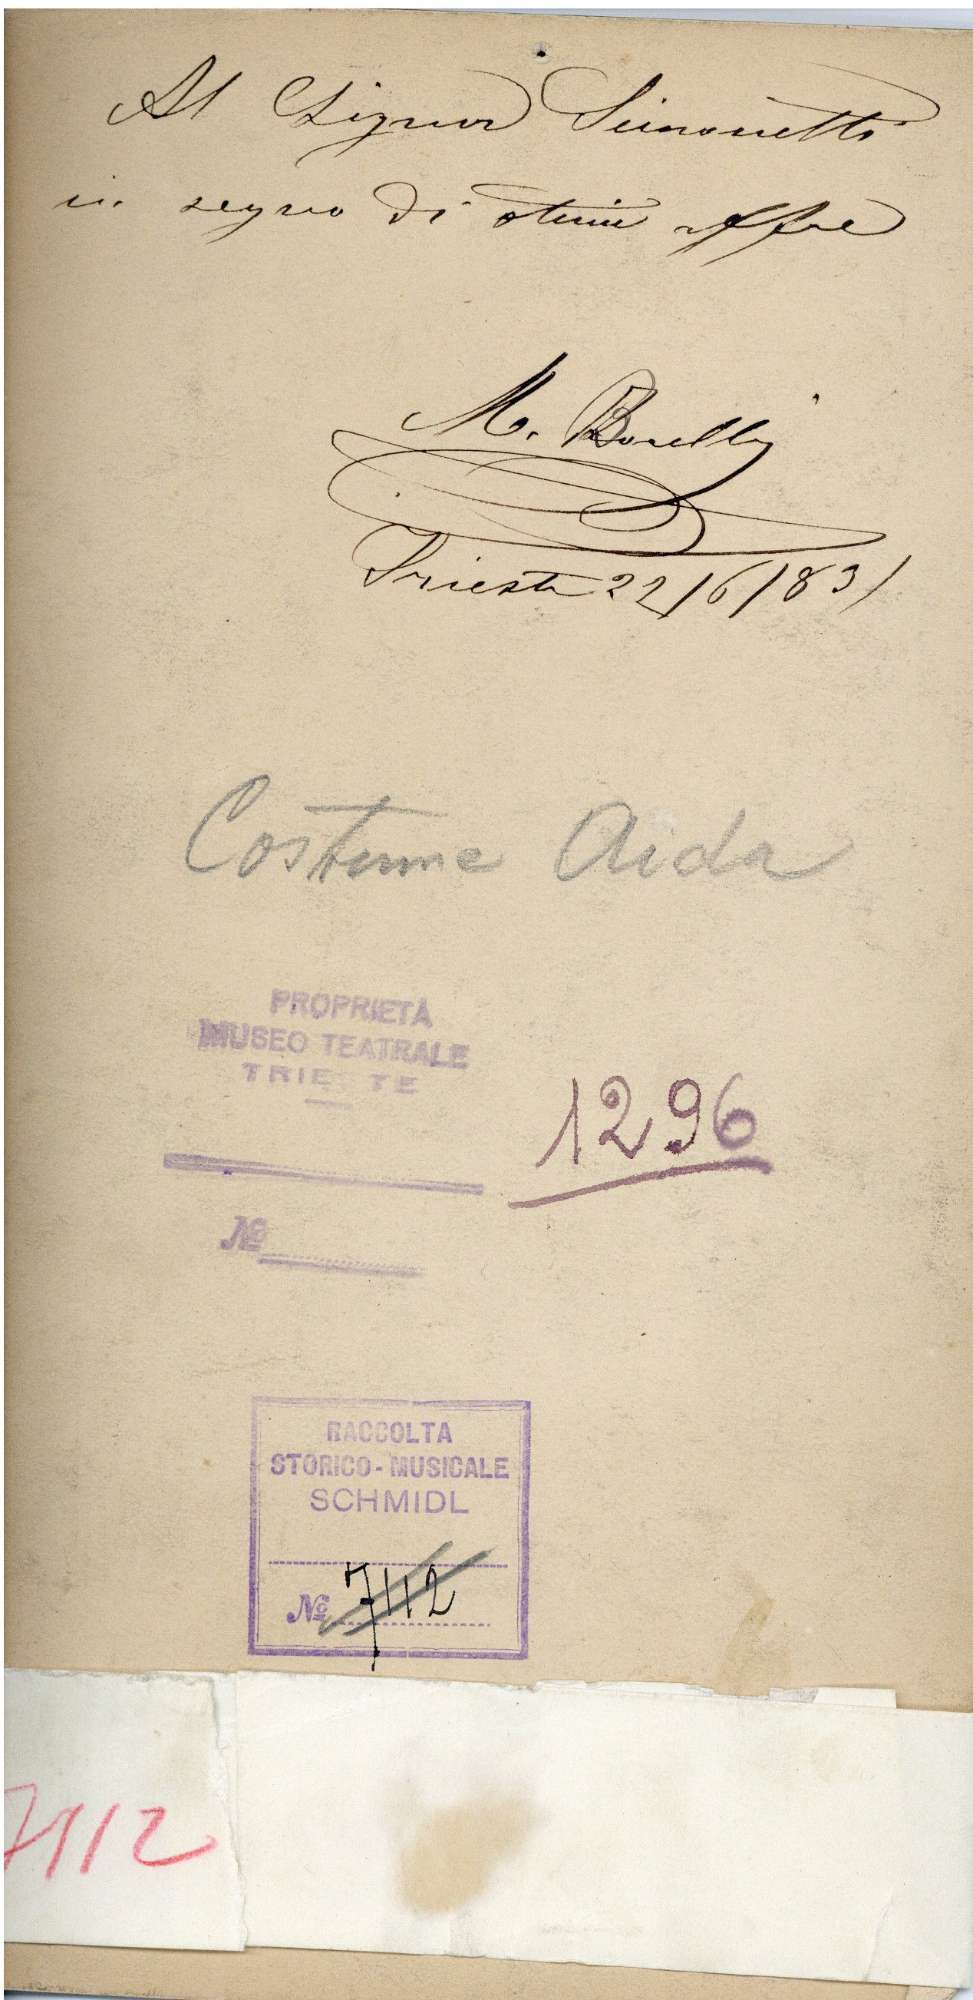 Al Signor Simonetti
in segno di stima offre
M. Borelli
Trieste 22/6/83/
Costume Aida
PROPRIETÀ
MUSEO TEATRALE
TRIESTE
1296
No
RACCOLTA
STORICO-MUSICALE
SCHMIDL
No 7112
7112